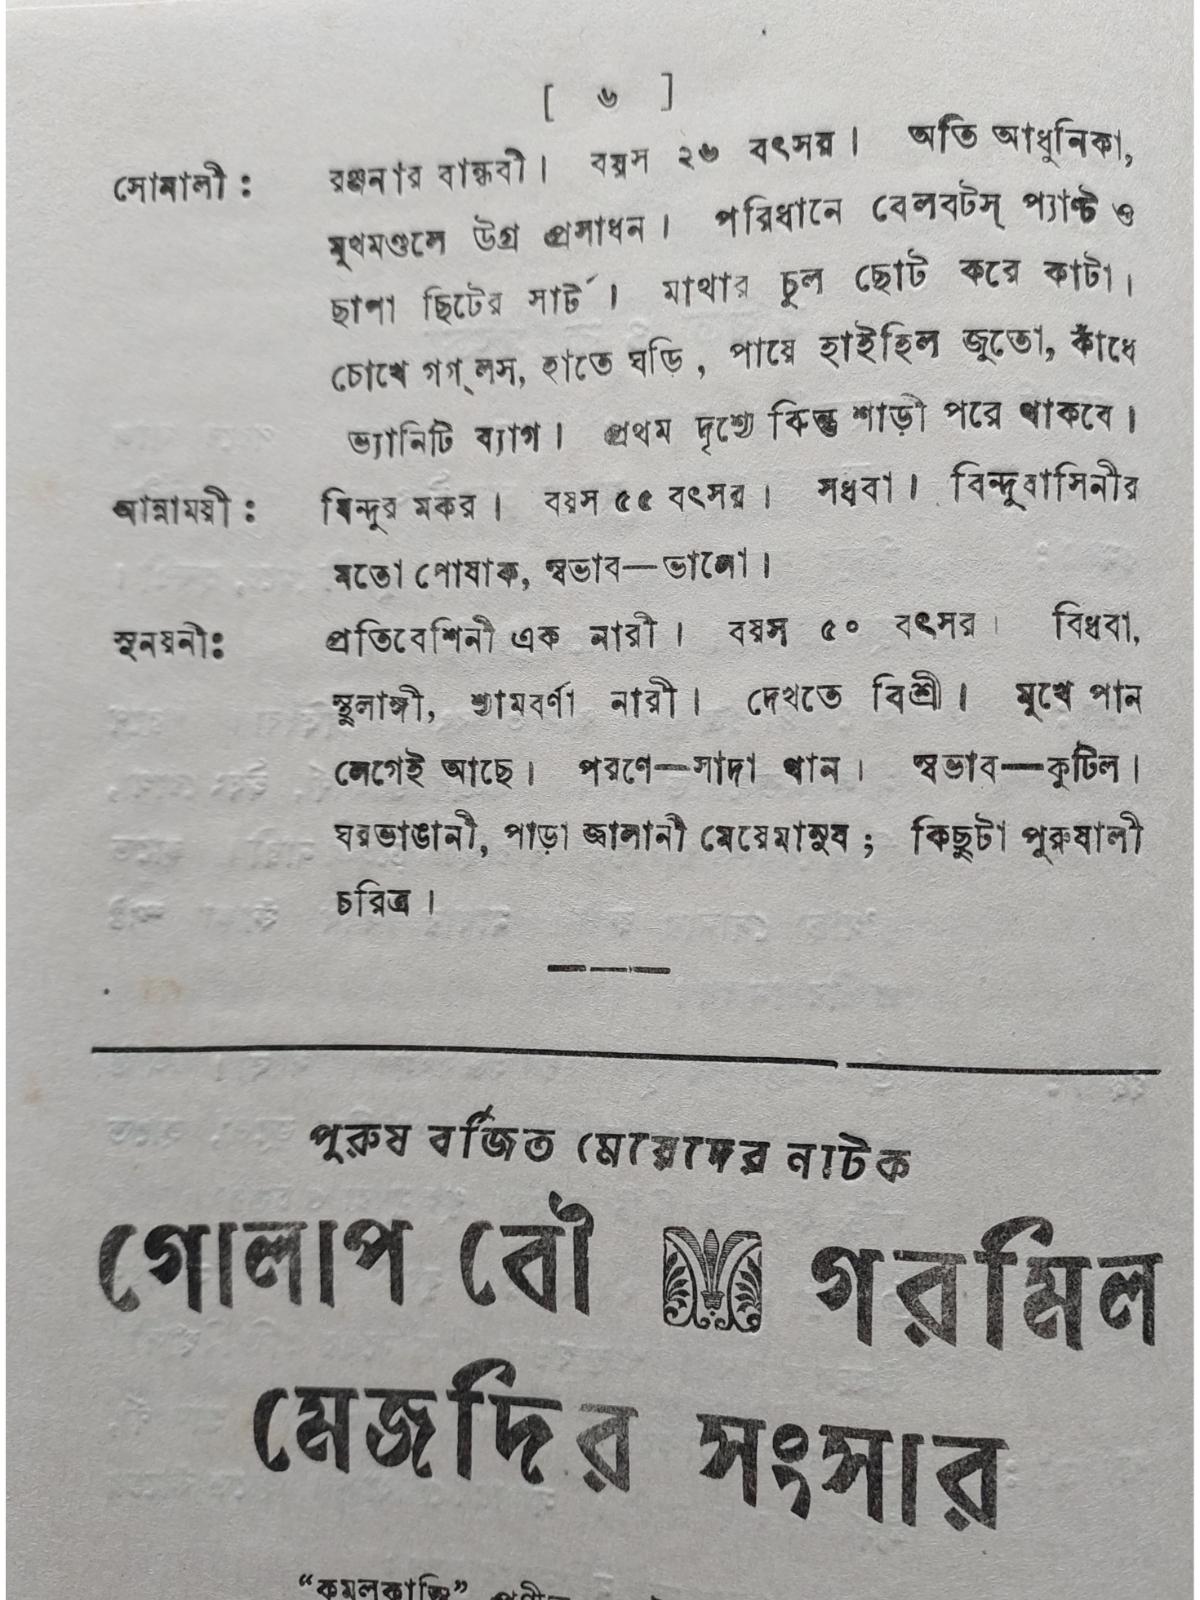 [ ৬ ]
সোনালী : রঞ্জনার বান্ধবী। বয়স ২৬ বৎসর। অতি আধুনিকা,
মুখমণ্ডলে উগ্র প্রসাধন। পরিধানে বেলবটস্ প্যাণ্ট ও
ছাপা ছিটের সার্ট। মাথার চুল ছোট করে কাটা।
চোখে গগ্‌লস, হাতে ঘড়ি, পায়ে হাইহিল জুতো, কাঁধে
ভ্যানিটি ব্যাগ। প্রথম দৃশ্যে কিন্তু শাড়ী পরে থাকবে।
আন্নাময়ী : বিন্দুর মকর। বয়স ৫৫ বৎসর। সধবা। বিন্দুবাসিনীর
মতো পোষাক, স্বভাব—ভালো।
সুনয়নী: প্রতিবেশিনী এক নারী। বয়স ৫০ বৎসর। বিধবা,
স্থুলাঙ্গী, শ্যামবর্ণা নারী। দেখতে বিশ্রী। মুখে পান
লেগেই আছে। পরণে—সাদা থান। স্বভাব—কুটিল।
ঘরভাঙানী, পাড়া জ্বালানী মেয়েমানুষ; কিছুটা পুরুষালী
চরিত্র।
পুরুষ বর্জিত মেয়েদের নাটক
গোলাপ বৌ গরমিল
মেজদির সংসার